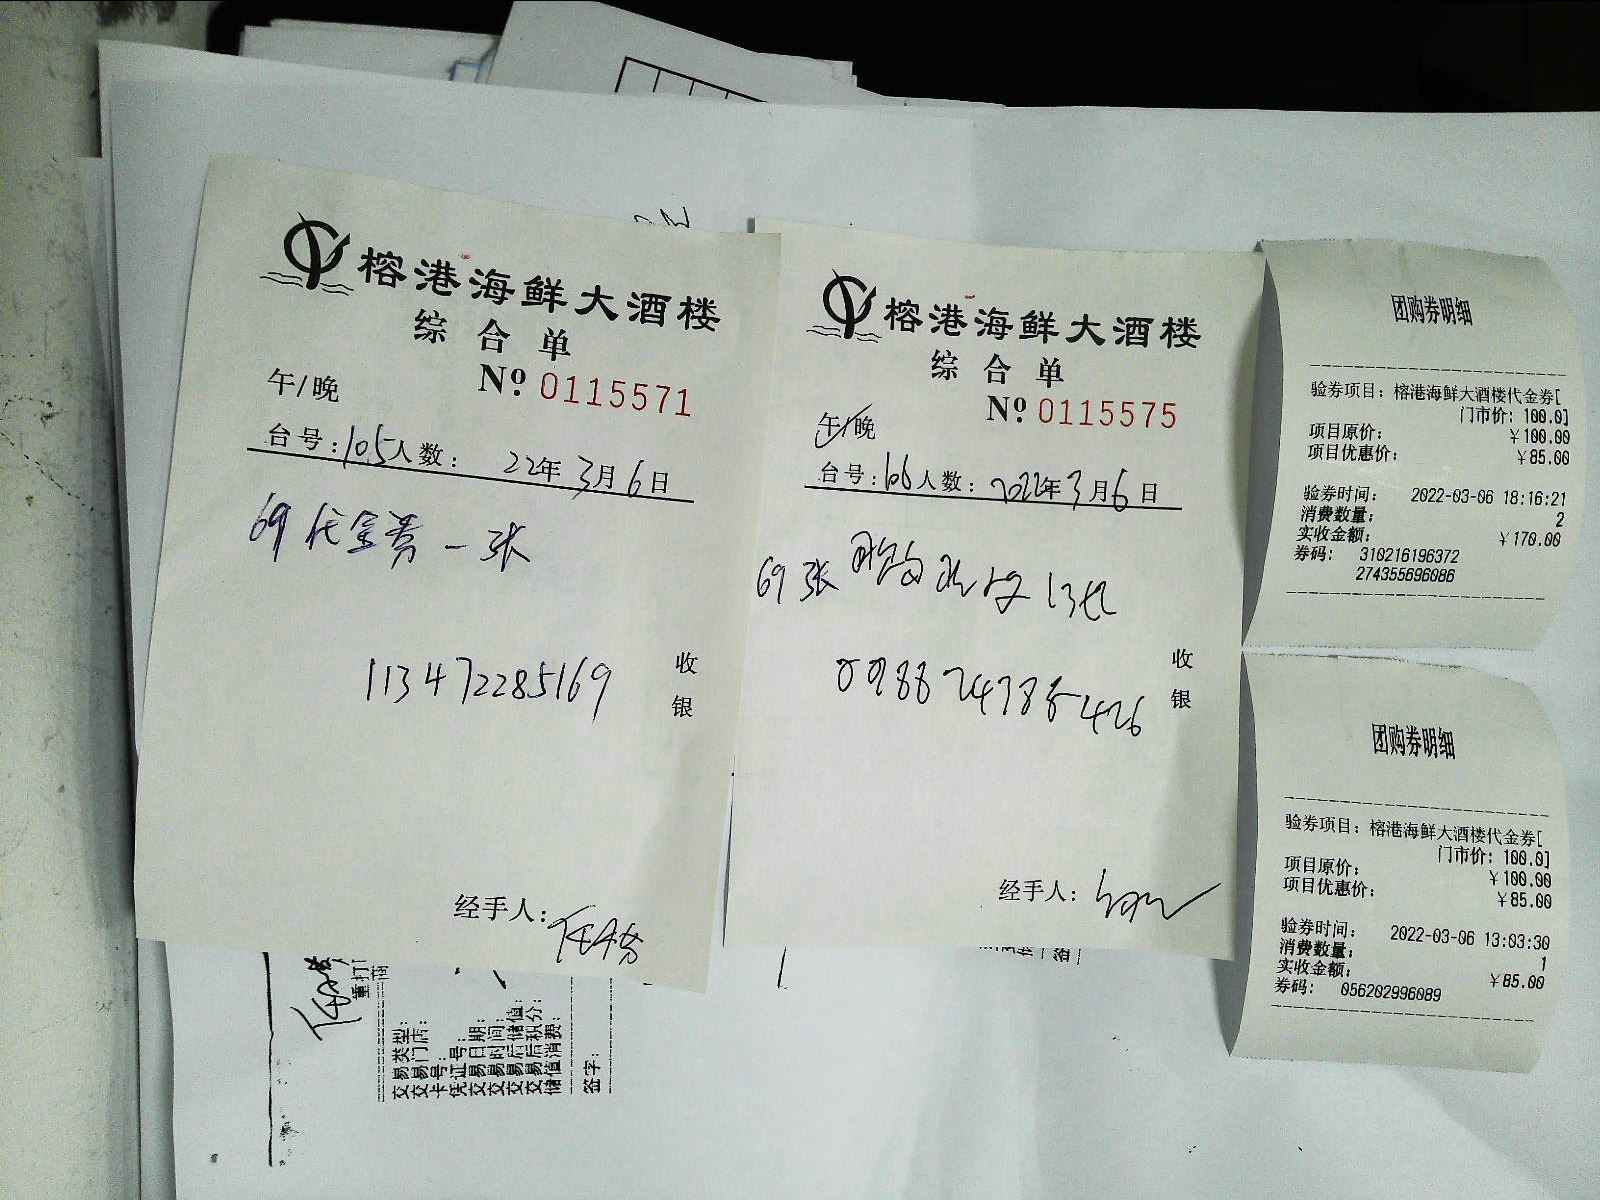 榕港海鲜大酒楼
综合单
午/晚
Nº 0115571
台号:105人数: 22年3月6日
69代金券一张
113472285169
收
银
经手人:
榕港海鲜大酒楼
综合单
Nº 0115575
午/晚
台号:106人数: 2022年3月6日
69张
098874788426
收
银
经手人:
团购券明细
验券项目: 榕港海鲜大酒楼代金券[
门市价: 100.0]
项目原价: ￥100.00
项目优惠价: ￥85.00
验券时间: 2022-03-06 18:16:21
消费数量: 2
实收金额: ￥170.00
券码: 310216196372
274355696086
团购券明细
验券项目: 榕港海鲜大酒楼代金券[
门市价: 100.0]
项目原价: ￥100.00
项目优惠价: ￥85.00
验券时间: 2022-03-06 13:03:30
消费数量: 1
实收金额: ￥85.00
券码: 056202996089
重打
商
交易类型:
交易门店:
卡号:
凭证号:
交易日期:
交易时间:
交易后储值:
交易后积分:
储值消费:
签字: